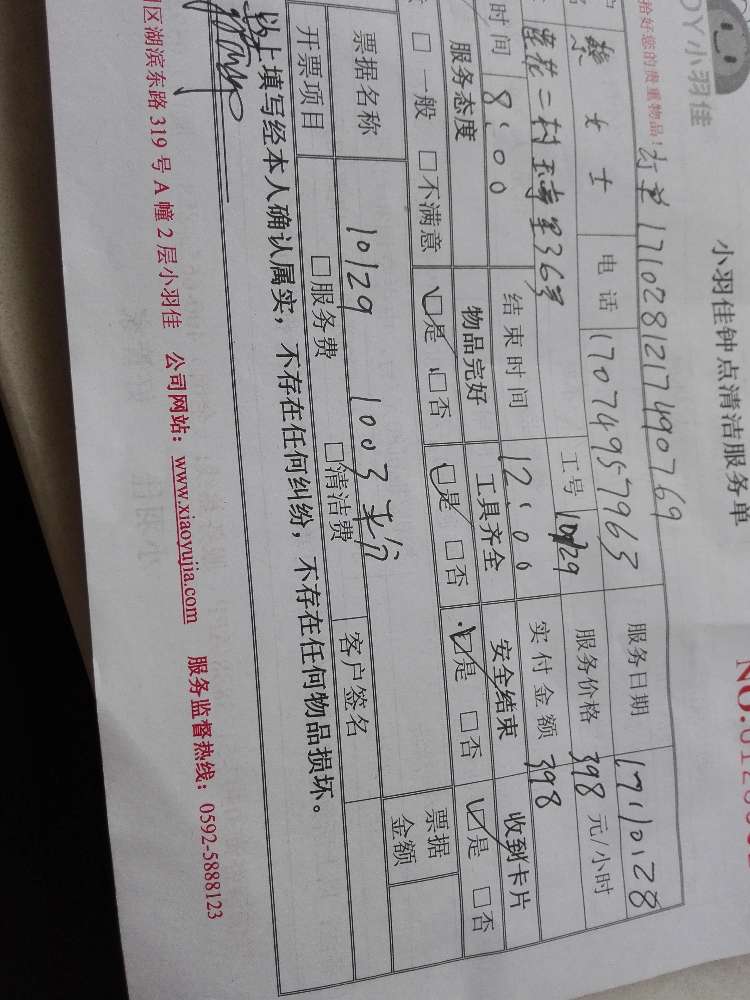 DY小羽佳
小羽佳钟点清洁服务单
拾好您的贵重物品!
1710281217490769
女士 电话 17074957963 服务日期 171028
莲花二村 36号 工号 1029 服务价格 398 元/小时
时间 8:00 结束时间 12:00 实付金额 398
服务态度 物品完好 工具齐全 安全结束 收到卡片
□一般 □不满意 □是 □否 □是 □否 □是 □否 □是 □否
1029 1003
票据名称 □服务费 □清洁费 客户签名 票据金额
开票项目
以上填写经本人确认属实，不存在任何纠纷，不存在任何物品损坏。
区湖滨东路 319 号 A 幢 2 层小羽佳 公司网站：www.xiaoyujia.com 服务监督热线：0592-5888123